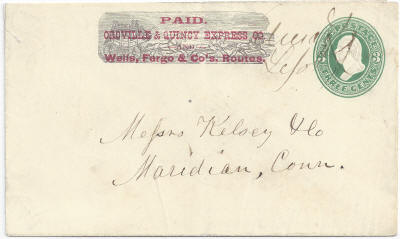 PAID.
OROVILLE & QUINCY EXPRESS CO
Wells, Fargo & Co's. Routes.
U.S. POSTAGE
THREE CENTS
Messrs Kelsey & Co
Maridian, Conn.